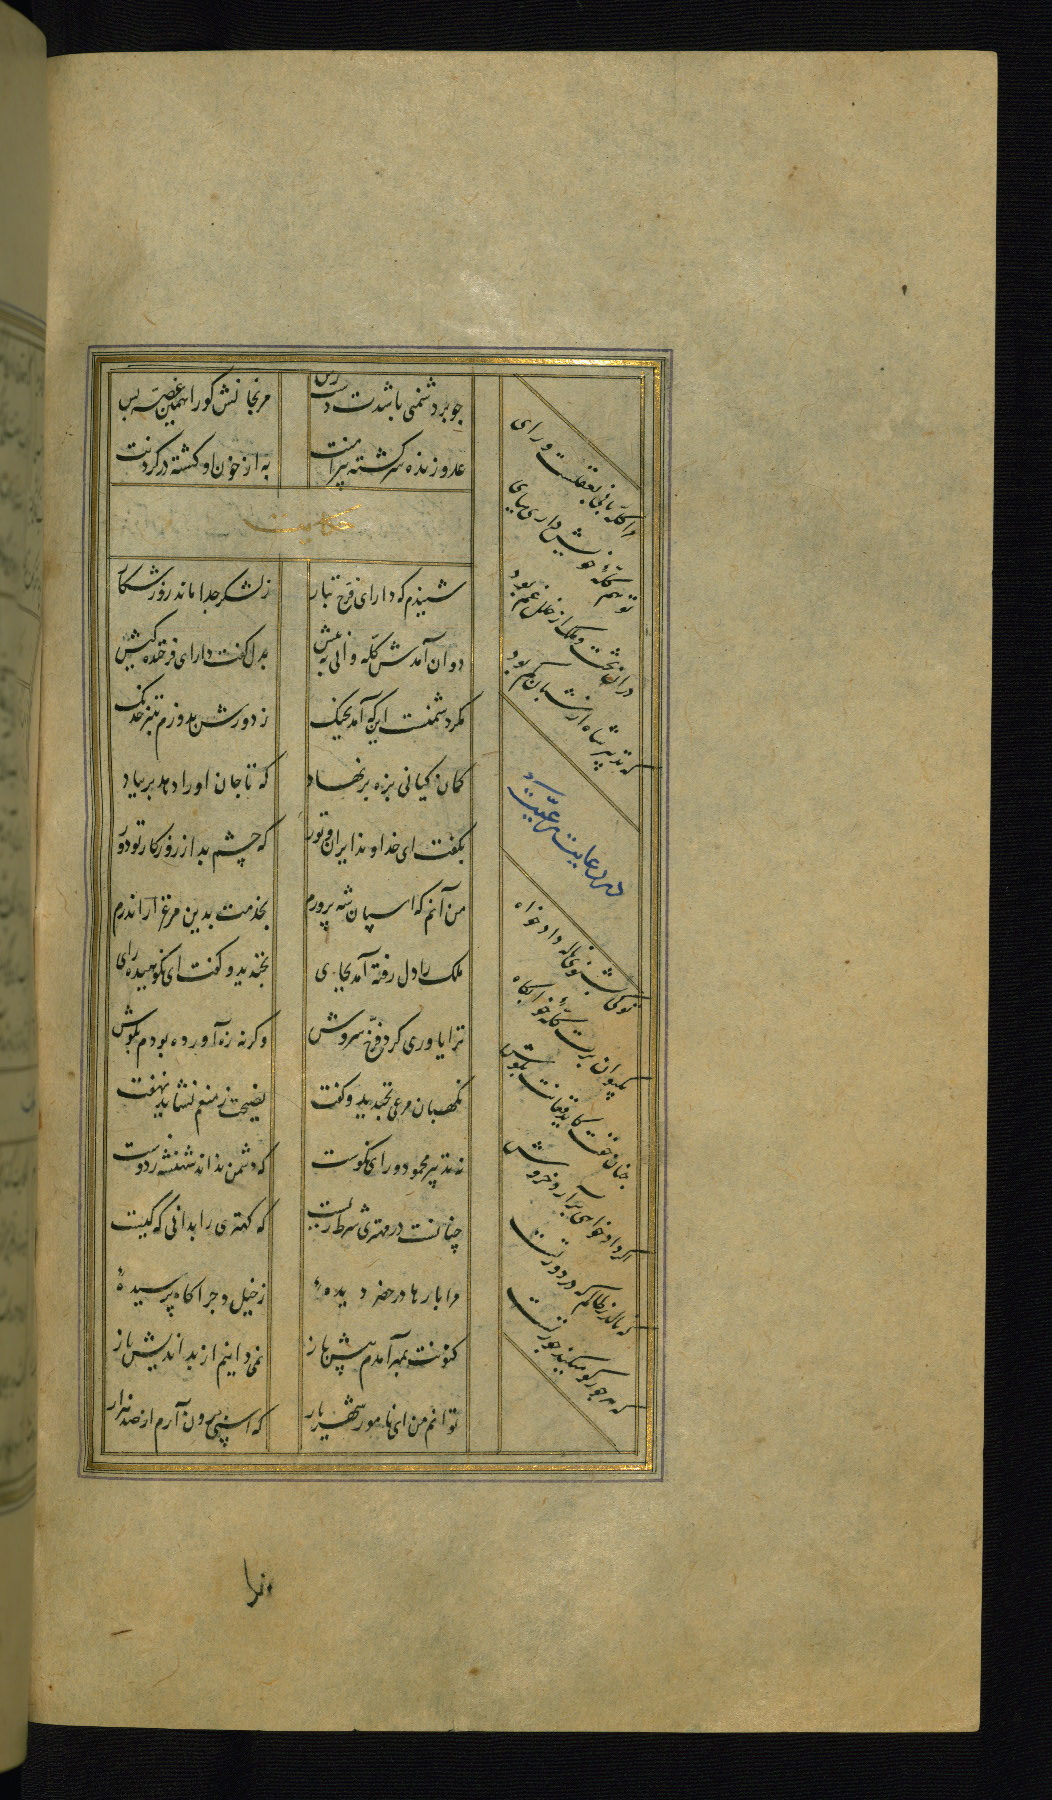 چو بر دشمنی باشدت دسترس
مرنجانش کو را همین غصه بس
عدو زنده سرگشته پیرامنت
به از خون او کشته در گردنت
حکایت
شنیدم که دارای فرخ تبار
ز لشکر جدا ماند روز شکار
دوان آمدش گله وانی به پیش
بدل گفت دارای فرخنده کیش
مگر دشمنست این که آمد بجنک
ز دورش بدوزم بتیر خدنک
کمان کیانی بزه بر نهاد
که تا جان او را دهد بر بباد
بگفت ای خداوند ایران و تور
که چشم بد از روزگار تو دور
من آنم که اسپان شه پرورم
بخدمت بدین مرغزار اندرم
ملک را دل رفته آمد بجای
بخندید و گفت ای نکوهیده رای
ترا یاوری کرد فرخ سروش
وگرنه زه آورده بودم بگوش
نگهبان مرعی بخندید و گفت
نصیحت ز منعم نشاید نهفت
نه تدبیر محمود و رای نکوست
که دشمن نداند شهنشه ز دوست
چنانست در مهتری شرط زیست
که کهتری را بدانی که کیست
مرا بارها در حضر دیدهٔ
ز خیل و چراگاه پرسیدهٔ
کنونت بمهر آمدم پیش باز
نمی دانیم از بداندیش باز
توانم من ای نامور شهریار
که اسپی برون آرم از صد هزار
مرا گله بانی بعقلست و رای
تو هم گلهٔ خویش داری بپای
دران تخت و ملک از خلل غم بود
که تدبیر شاه از شبان کم بود
در رعایت رعیت
تو کی بشنوی ناله دادخواه
بکیوان برت کلهٔ خوابگاه
چنان خفت کاید فغانت بگوش
اگر دادخواهی برآرد خروش
که نالد ز ظالم که در دور تست
که هر جور کو میکند جور تست
ترا